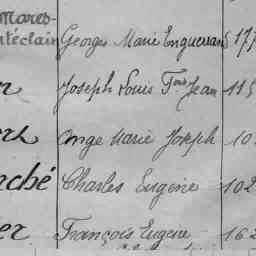 Mares-
téclain Georges Marie Enguerrand 177
Joseph Louis Fois Jean 115
Ange Marie Joseph 10
nché Charles Eugène 102
er François Eugène 162